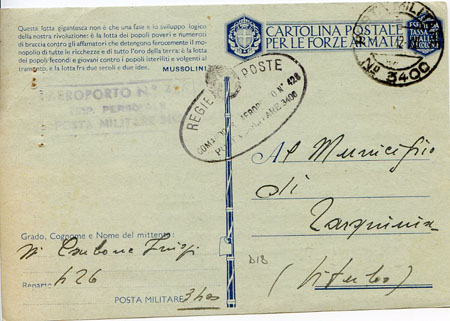 Questa lotta gigantesca non è che una fase e lo sviluppo logico
della nostra rivoluzione: è la lotta dei popoli poveri e numerosi
di braccia contro gli affamatori che detengono ferocemente il monopolio
di tutte le ricchezze e di tutto l'oro della terra: è la lotta
dei popoli fecondi e giovani contro i popoli isteriliti e volgenti al
tramonto, è la lotta fra due secoli e due idee.
MUSSOLINI
CARTOLINA POSTALE
PER LE FORZE ARMATE
Nº 3400
REGIE POSTE
AEROPORTO Nº 426
AEROPORTO Nº
POSTA MILITARE
Al Municipio
di
Tarquinia
(Viterbo)
D18
Grado, Cognome e Nome del mittente:
Carbone Luigi
Reparto 426
POSTA MILITARE 3400